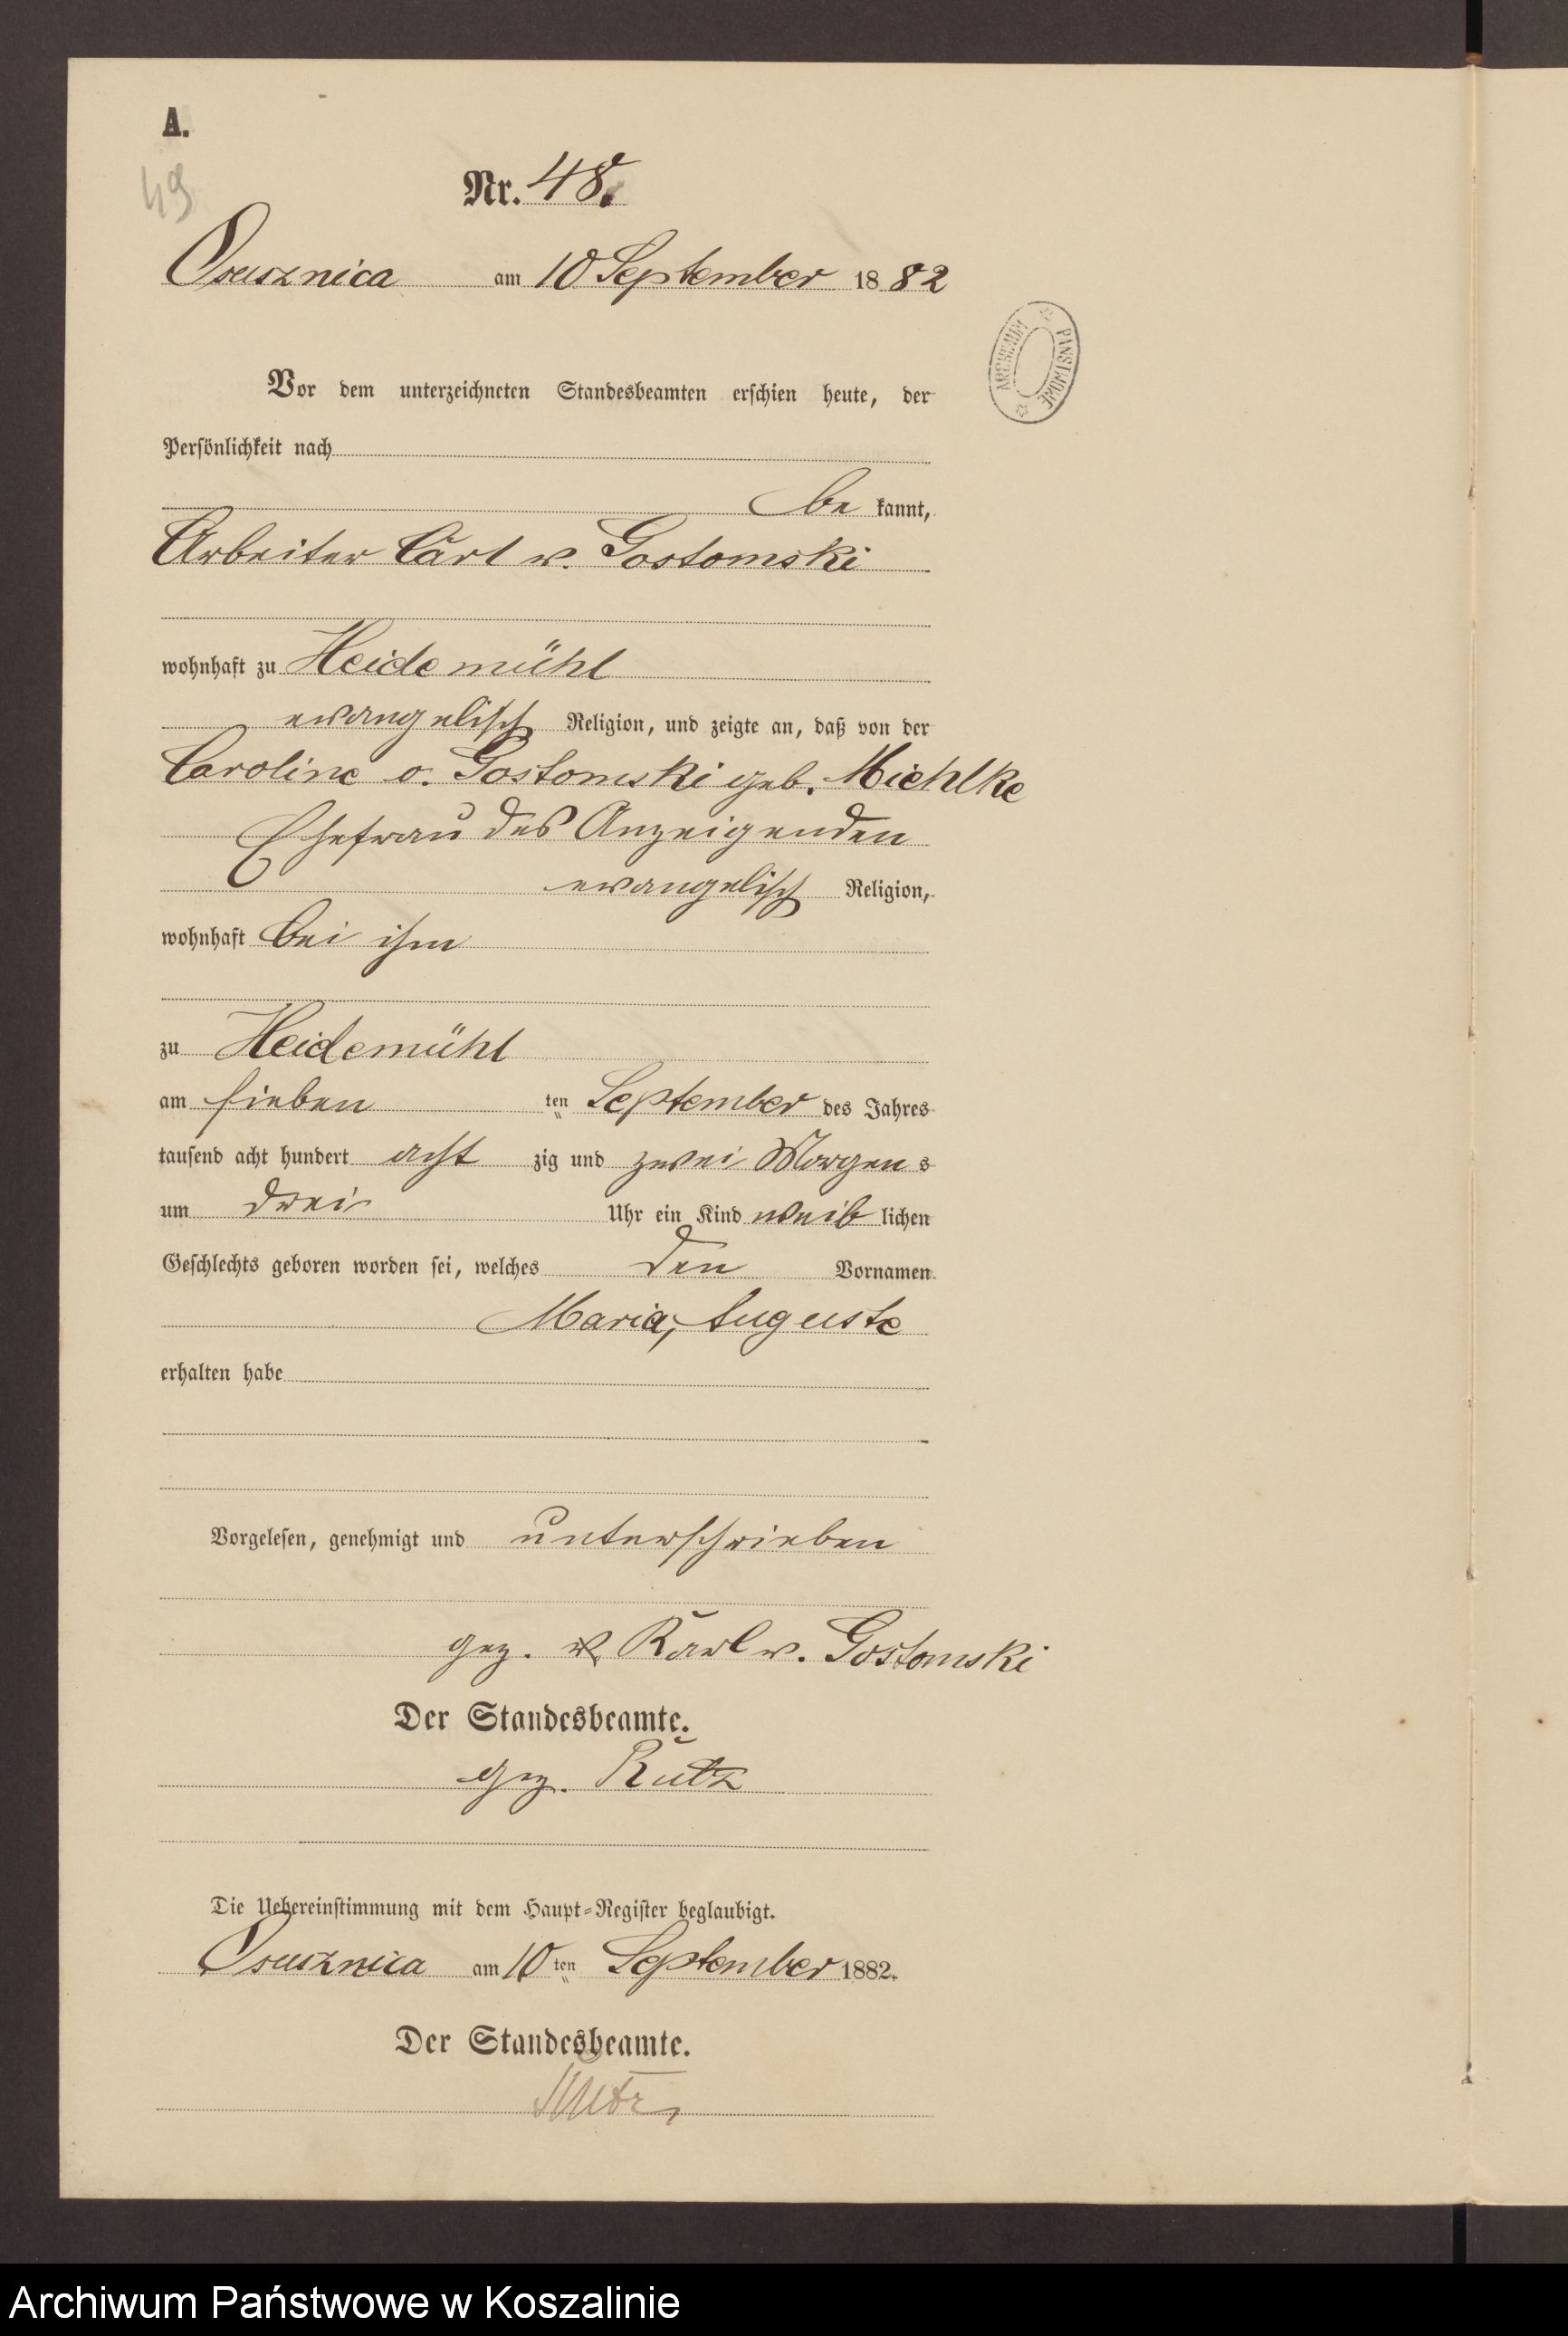 A.
49
Nr. 48.
Osusznica am 10 September 1882
ARCHIWUM PAŃSTWOWE
Vor dem unterzeichneten Standesbeamten erschien heute, der
Persönlichkeit nach
be kannt,
Arbeiter Carl v. Gostomski
wohnhaft zu Heidemühl
evangelisch Religion, und zeigte an, daß von der
Caroline v. Gostomski geb. Miehlke
Ehefrau des Anzeigenden
evangelisch Religion,
wohnhaft bei ihm
zu Heidemühl
am sieben ten September des Jahres
tausend acht hundert acht zig und zwei Morgens
um drei Uhr ein Kind weib lichen
Geschlechts geboren worden sei, welches den Vornamen
Maria, Auguste
erhalten habe
Vorgelesen, genehmigt und unterschrieben
gez. Karl v. Gostomski
Der Standesbeamte.
gez. Rutz
Die Uebereinstimmung mit dem Haupt-Register beglaubigt.
Osusznica am 10 ten September 1882.
Der Standesbeamte.
Rutz
Archiwum Państwowe w Koszalinie